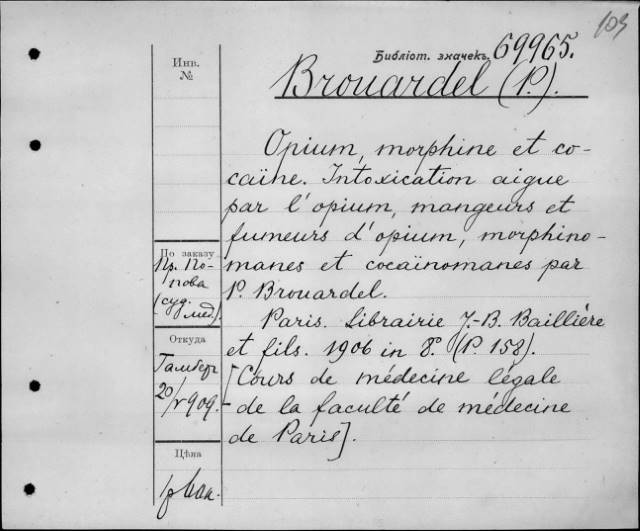 103
Библіот. значекъ 69965.
Brouardel (P.).
Opium, morphine et co-
caïne. Intoxication aigue
par l'opium, mangeurs et
fumeurs d'opium, morphino-
manes et cocaïnomanes par
P. Brouardel.
Paris. Librairie J.-B. Baillière
et fils. 1906 in 8º. (P. 158).
[Cours de médecine légale
de la faculté de médecine
de Paris].
Инв.
№
По заказу
Пр. По-
пова
(суд.
мед.)
Откуда
20/V 909.
Цѣна